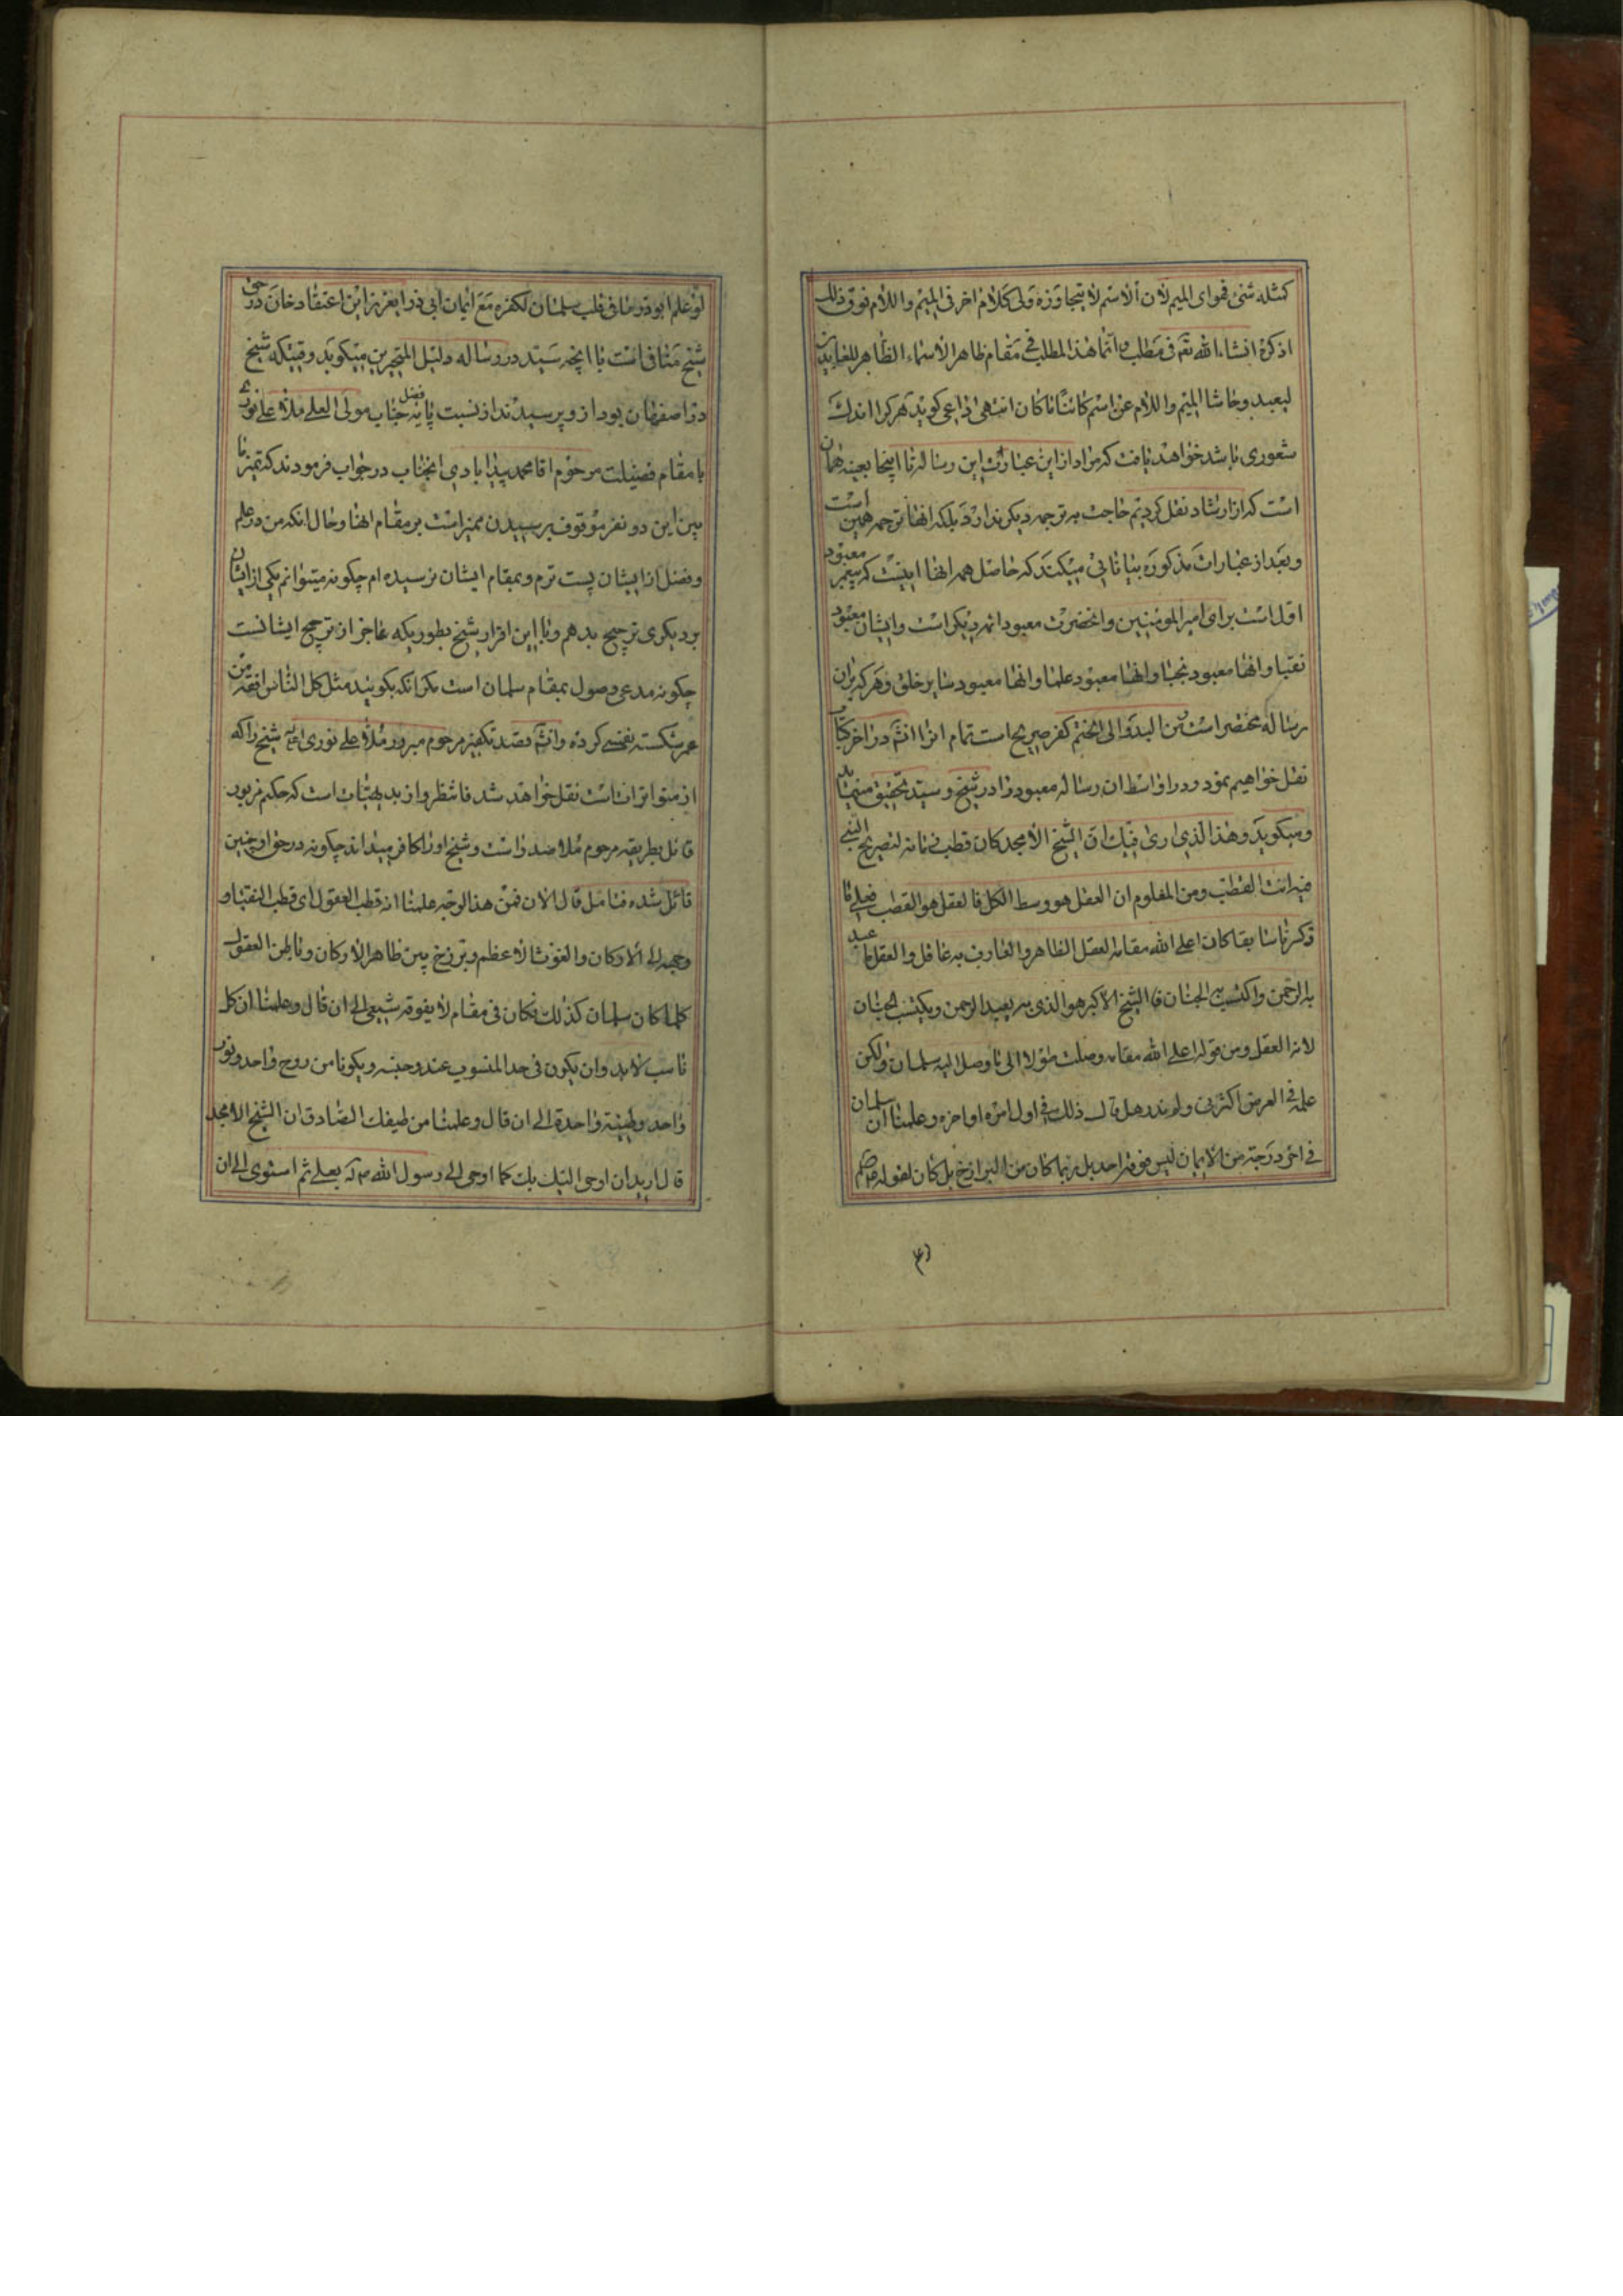 کمثله شئ فهوای المیم لان الاسم لا یتجاوزه ولی کلام اخر فی المیم واللام فوق ذلک
اذکره انشاء الله تع فی مطلب وانما هذا المطلب فی مقام ظاهر الاسماء الظاهر للعابدین
لیعبد وحاشا المیم واللام عن اسم کائنا ما کان انتهی داعی کوید هرکرا اندک
شعوری باشد خواهد یافت که مراد ازاین عبارات این رساله تا اینجا بعینه همان
است که از ارشاد نقل کردیم حاجت به ترجمه دیکر ندارد بلکه انها ترجمه همین است
و بعد از عبارات مذکوره بیاناتی میکند که حاصل همه انها اینست که پیغمبر معبود
اول است برای امیرالمؤمنین وانحضرت معبود ائمه دیکر است وایشان معبود
نقبا وانها معبود نجبا وانها معبود علما وانها معبود سایر خلق وهرکه بران
رساله مختصر است من البدو الی الختم کفر صریح است تمام انرا انش در اخر کتاب
نقل خواهیم نمود ودر اواسط ان رساله معبود را در شیخ وسید تحقیق مینماید
ومیکوید وهذا الذی اری فیک ان الشیخ الامجد کان قطب زمانه لتصریح النبی
فیه انت القطب ومن المعلوم ان العقل هو وسط الکل فالعقل هو القطب فعلی ما
ذکرنا سابقا کان اعلی الله مقامه العقل الظاهر والعارف به عاقل والعقل ما عبد
به الرحمن واکتسب به الجنان فالشیخ الاکبر هو الذی به یعبد الرحمن ویکتسب الجنان
لانه العقل ومن قوله اعلی الله مقامه وصلت طولا الی ما وصل الیه سلمان ولکن
علمه فی العرض اکثر منی ولم ندر هل قال ذلک فی اول امره او اخره وعلمنا ان سلمان
فی اعلی درجة من الایمان لیس فوقه احد بل ربما کان من البرازخ بل کان لقوله صلعم
۴۱
لو علم ابوذر ما فی قلب سلمان لکفره مع ایمان ابی ذر ایعزیز این اعتقاد خان در حق
شیخ منافی است با انچه سید در رساله دلیل المتحیرین میکوید وقتیکه شیخ
در اصفهان بود از و پرسیدند از نسبت پایه فضل جناب مولی العلی ملا علی نوری
با مقام فضیلت مرحوم اقا محمد بیدابادی انجناب در جواب فرمودند که تمیز ما
بین این دو نفر موقوف برسیدن ممیز است بر مقام انها وحال انکه من در علم
وفضل از ایشان پست ترم و بمقام ایشان نرسیده ام چکونه میتوانم یکی از ایشان
بر دیکری ترجیح بدهم وبا این اقرار شیخ بطوریکه عاجز از ترجیح ایشانست
چکونه مدعی وصول بمقام سلمان است مکر انکه بکویند مثل کل الناس افقه من
عمر شکسته نفسی کرده وانش قصد تکفیر مرحوم مبرور ملا علی نوری شیخ را که
از متواترات است نقل خواهد شد فانتظر واز بدیهیات است که حکیم مزبور
قائل بطریقه مرحوم ملا صدراست وشیخ اورا کافر میداند چکونه در حق او چنین
قائل شده فتامل قال الان فمن هذا الوجه علمنا انه قطب العقول ای قطب النقبا و
وجهه الی الارکان والغوث الاعظم وبرزخ بین ظاهر الارکان وباطن العقول
کلما کان سلمان کذلک فکان فی مقام لا یفوقه شیعی الی ان قال وعلمنا ان کل
ناسب لابد وان یکون فی حد المنسوب عنده وجنبه ویکونا من روح واحد ونور
واحد وطینة واحدة الی ان قال وعلمنا من طیفک الصادق ان الشیخ الامجد
قال ارید ان اوحی الیک بک کما اوحی الی رسول الله ص بعلی ثم استوی الی ان